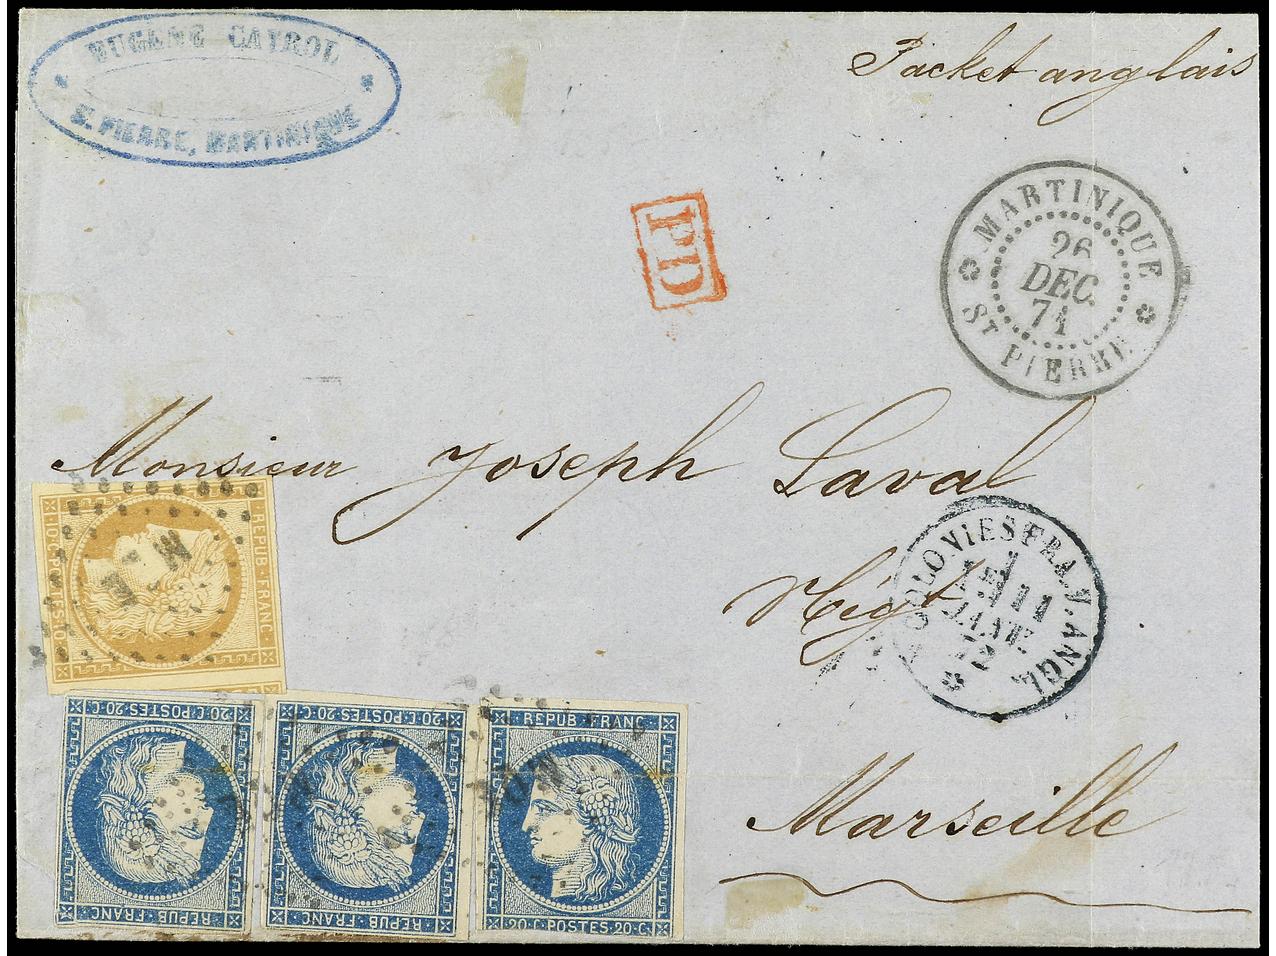 EUGENE CAYROL
St. PIERRE, MARTINIQUE
Packet anglais
PD
MARTINIQUE
26
DEC.
71
ST PIERRE
Monsieur Joseph Laval
Négt
Marseille
COLONIES FRA. V. ANGL.
11
JANV
REPUB. FRANC.
10. C. POSTES. 10. C.
20. C. POSTES. 20. C.
REPUB. FRANC.
20. C. POSTES. 20. C.
REPUB. FRANC.
REPUB. FRANC.
20. C. POSTES. 20. C.